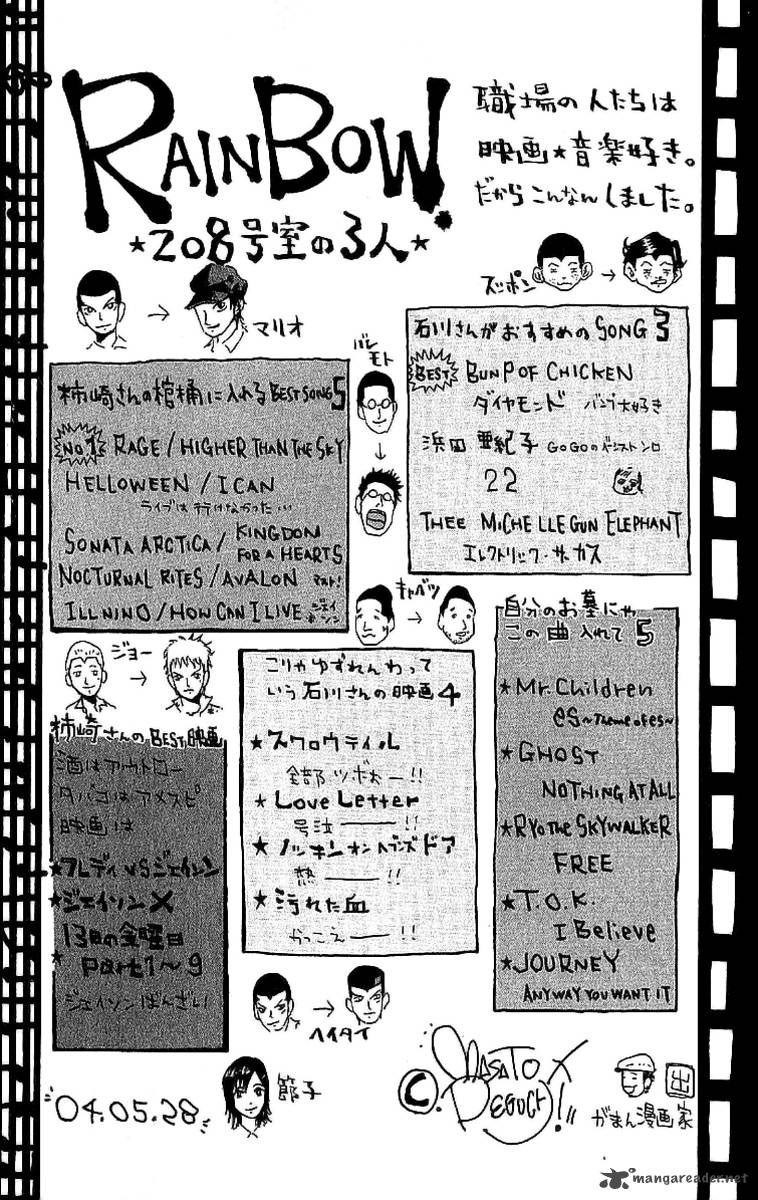 RAINBOW
★208号室の3人★
職場の人たちは
映画★音楽好き。
だからこんなんしました。
マリオ
スッポン
バレモト
柿崎さんの棺桶に入れるBEST SONG 5
No.1 RAGE / HIGHER THAN THE SKY
HELLOWEEN / I CAN
ライブは行けなかった…
SONATA ARCTICA / KINGDON
FOR A HEARTS
NOCTURNAL RITES / AVALON マスト!
ILL NINO / HOW CAN I LIVE ジェイソン
石川さんがおすすめのSONG 3
BEST BUNP OF CHICKEN
ダイヤモンド バンプ大好き
浜田亜紀子 GOGOのベーシスト ソロ
22
THEE MICHELLE GUN ELEPHANT
エレクトリック・サーカス
キャベツ
ジョー
自分のお墓にゃ
この曲入れて5
★Mr.Children
es~Theme of es~
★GHOST
NOTHING AT ALL
★RYO THE SKYWALKER
FREE
★T.O.K.
I Believe
★JOURNEY
ANYWAY YOU WANT IT
こりゃゆずれんわって
いう石川さんの映画4
★スワロウテイル
全部ツボ大ー!!
★Love Letter
号泣ー!!
★ノッキンオンヘブンズドア
熱ー!!
★汚れた血
かっこえー!!
柿崎さんのBEST映画
酒はアウトロー
タバコはアメスピ
映画は
★フレディVSジェイソン
★ジェイソンX
★13日の金曜日
Part1~9
ジェイソンばんざい
ヘイタイ
節子
04.05.28
©. MASATO X
DEGUCHI!!
出
がまん漫画家
mangareader.net